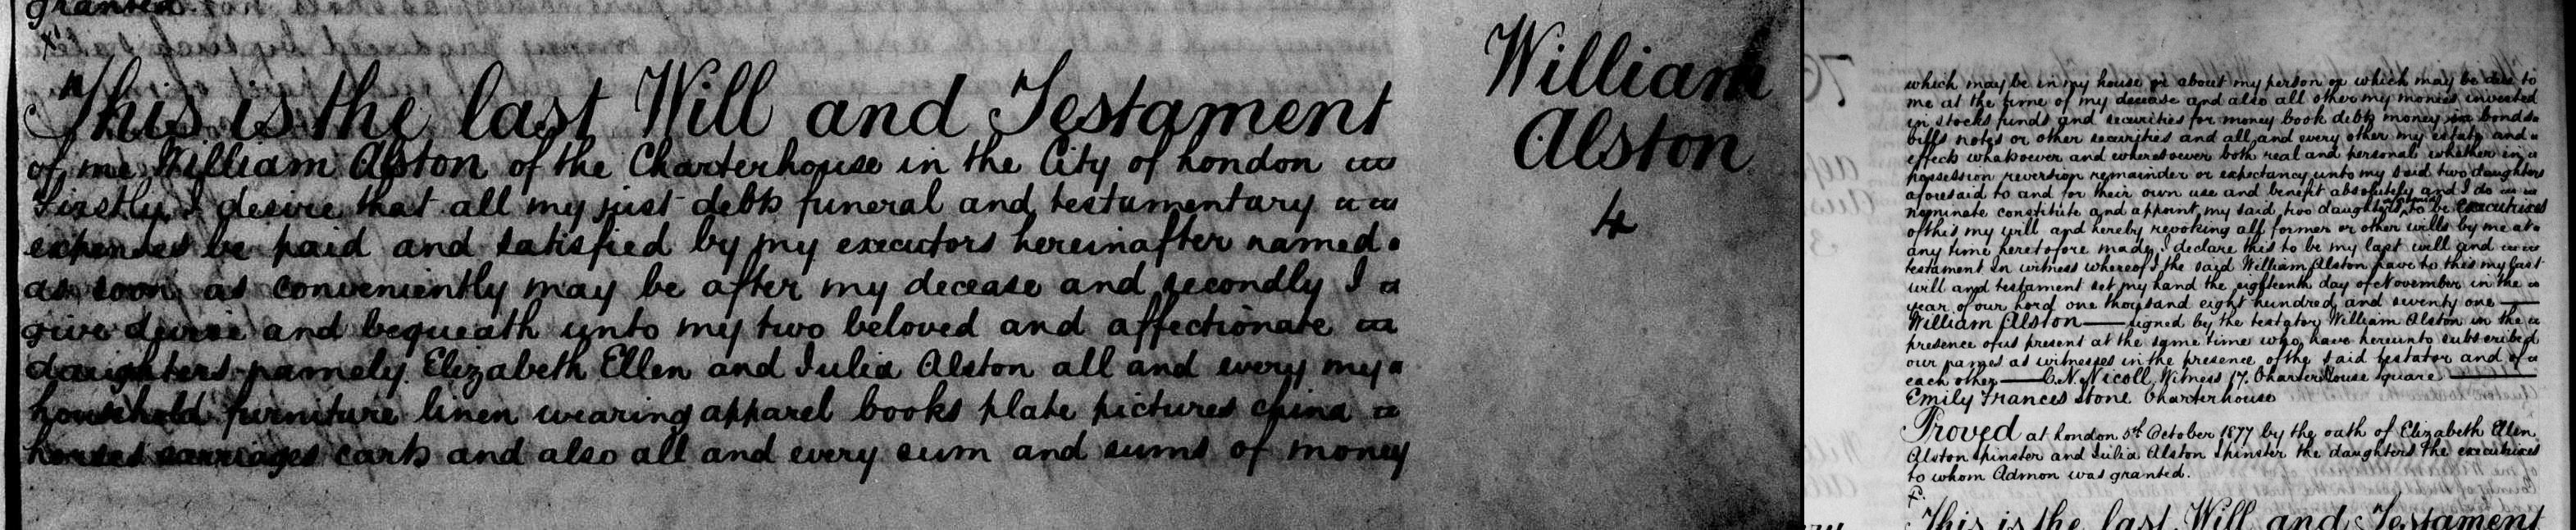 granted.
This is the last Will and Testament
of me William Alston of the Charterhouse in the City of London
Firstly I desire that all my just debts funeral and testamentary
expenses be paid and satisfied by my executors hereinafter named
as soon as conveniently may be after my decease and secondly I
give devise and bequeath unto my two beloved and affectionate
daughters namely Elizabeth Ellen and Julia Alston all and every my
household furniture linen wearing apparel books plate pictures china
horses carriages carts and also all and every sum and sums of money
William
Alston
4
which may be in my house or about my person or which may be due to
me at the time of my decease and also all other my monies invested
in stocks funds and securities for money book debts money in bonds
bills notes or other securities and all and every other my estate and
effects whatsoever and wheresoever both real and personal whether in
possession reversion remainder or expectancy unto my said two daughters
aforesaid to and for their own use and benefit absolutely and I do
nominate constitute and appoint my said two daughters aforesaid to be executrixes
of this my will and hereby revoking all former or other wills by me at
any time heretofore made I declare this to be my last will and
testament In witness whereof I the said William Alston have to this my last
will and testament set my hand the eighteenth day of November in the
year of our Lord one thousand eight hundred and seventy one —
William Alston — signed by the testator William Alston in the
presence of us present at the same time who have hereunto subscribed
our names as witnesses in the presence of the said testator and of
each other — C.N. Nicoll, Witness 17. Charter House Square —
Emily Frances Stone Charterhouse
Proved at London 5th October 1877 by the oath of Elizabeth Ellen
Alston Spinster and Julia Alston Spinster the daughters the executrixes
to whom Admon was granted.
This is the last Will and Testament